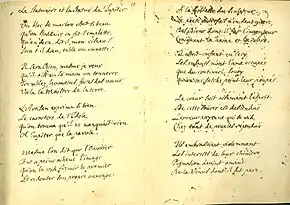 Le Statuaire et la Statue de Jupiter
Un bloc de marbre estoit si beau
Qu'un Statuaire en fit l'emplette
Qu'en fera, dit-il, mon ciseau?
Sera-t-il Dieu, table ou cuvette
Il sera Dieu, mesme je veux
Qu'il ait en sa main un tonnerre
Tremblez humains, faites des voeux
Voila le maistre de la terre.
L'artisan exprima si bien
Le caractere de l'Idole
Qu'on trouva qu'il ne manquoit rien
A Jupiter que la parole.
Mesme l'on dit que l'ouvrier
Eut a peine achevé l'image
Qu'on le vid fremir le premier
Et redouter son propre ouvrage.
A la foiblesse du Sculpteur
Le Poete autrefois n'en dut guere
Des Dieux dont il fut l'inventeur
Craignant la haine et la colere.
Il estoit enfant en cecy
Les enfans n'ont l'ame occupée
Que du continuel soucy
Qu'on ne fasche point leur poupée.
Le coeur suit aisement l'esprit
De cette source est descendue
L'erreur payenne qui se vid
Chez tant de peuples repandue
Ils embrassoient violemment
Les interests de leur chimere
Pigmalion devint amant
De la Venus dont il fut pere.